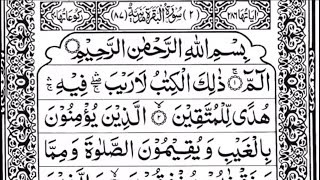 اٰیَاتُهَا ٢٨٦ (٢) سُوْرَةُ الْبَقَرَةِ مَدَنِیَّةٌ (٨٧) رُكُوْعَاتُهَا
بِسْمِ اللّٰهِ الرَّحْمٰنِ الرَّحِیْمِ
الٓمّٓ ۚ ﴿١﴾ ذٰلِكَ الْكِتٰبُ لَا رَیْبَ ۛۖ فِیْهِ ۛۚ
هُدًی لِّلْمُتَّقِیْنَ ﴿٢﴾ الَّذِیْنَ یُؤْمِنُوْنَ
بِالْغَیْبِ وَیُقِیْمُوْنَ الصَّلٰوةَ وَمِمَّا